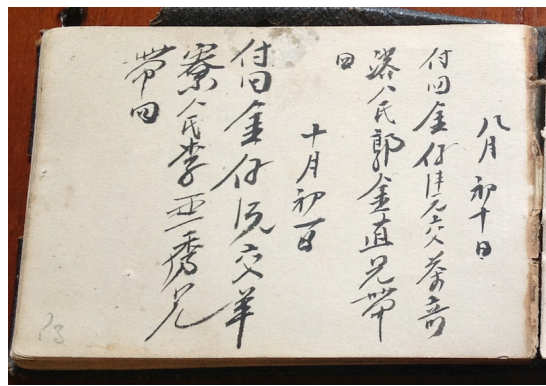 八月初十日
付回金仔元交茶
人民郭金直兄帶
回
十月初一日
付回金仔元交羊
寮人民李亞秀兄
帶回
13